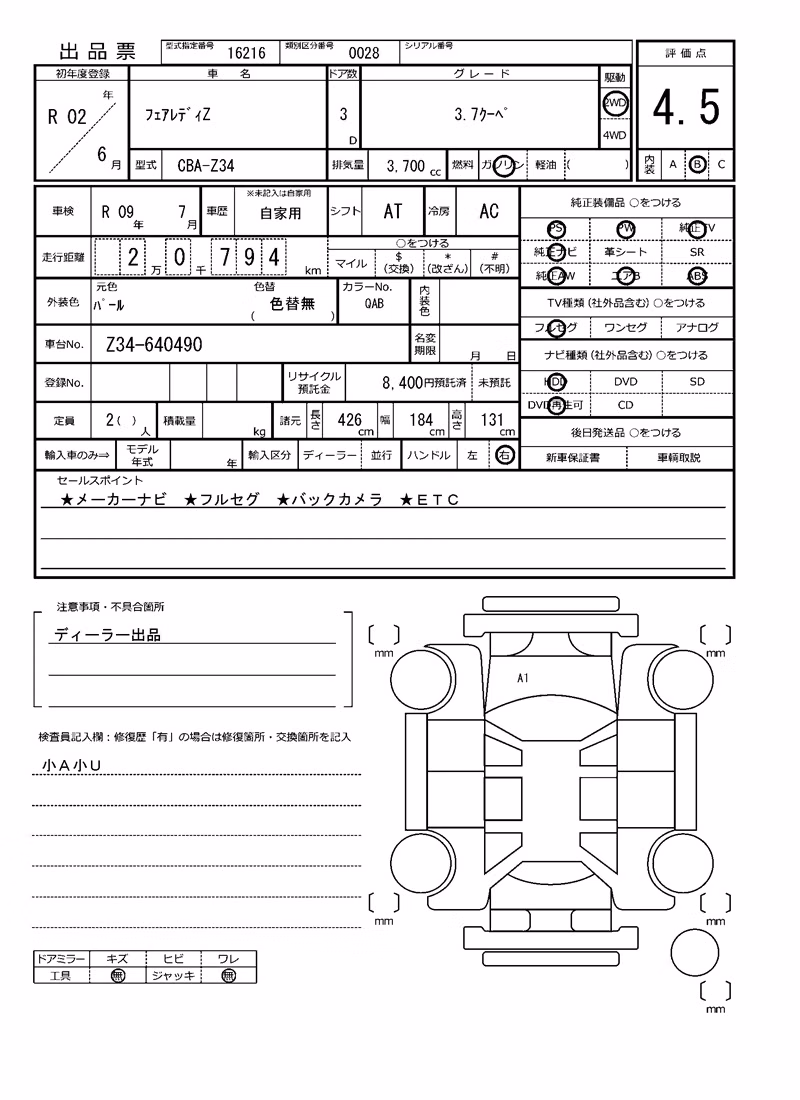 出品票 型式指定番号 16216 類別区分番号 0028 シリアル番号
評価点
4.5
内装 A B C
初年度登録 車名 ドア数 グレード 駆動
R 02 年 6 月 フェアレディZ 3 D 3.7クーペ 2WD
4WD
型式 CBA-Z34 排気量 3,700 cc 燃料 ガソリン 軽油 ( )
車検 R 09 年 7 月 車歴 ※未記入は自家用 自家用 シフト AT 冷房 AC
走行距離 2 万 0 千 7 9 4 km
○をつける
マイル $ (交換) * (改ざん) # (不明)
外装色 元色 パール 色替 色替無 ( ) カラーNo. QAB 内装色
車台No. Z34-640490 名変期限 月 日
登録No. リサイクル預託金 8,400円預託済 未預託
定員 2( ) 人 積載量 kg 諸元 長さ 426 cm 幅 184 cm 高さ 131 cm
輸入車のみ⇒ モデル年式 年 輸入区分 ディーラー 並行 ハンドル 左 右
純正装備品 ○をつける
PS PW 純正TV
純正ナビ 革シート SR
純正AW エアB ABS
TV種類(社外品含む)○をつける
フルセグ ワンセグ アナログ
ナビ種類(社外品含む)○をつける
HDD DVD SD
DVD再生可 CD
後日発送品 ○をつける
新車保証書 車輌取説
セールスポイント
★メーカーナビ ★フルセグ ★バックカメラ ★ETC
注意事項・不具合箇所
ディーラー出品
検査員記入欄：修復歴「有」の場合は修復箇所・交換箇所を記入
小A小U
ドアミラー キズ ヒビ ワレ
工具 無 ジャッキ 無
mm mm
A1
mm mm
mm